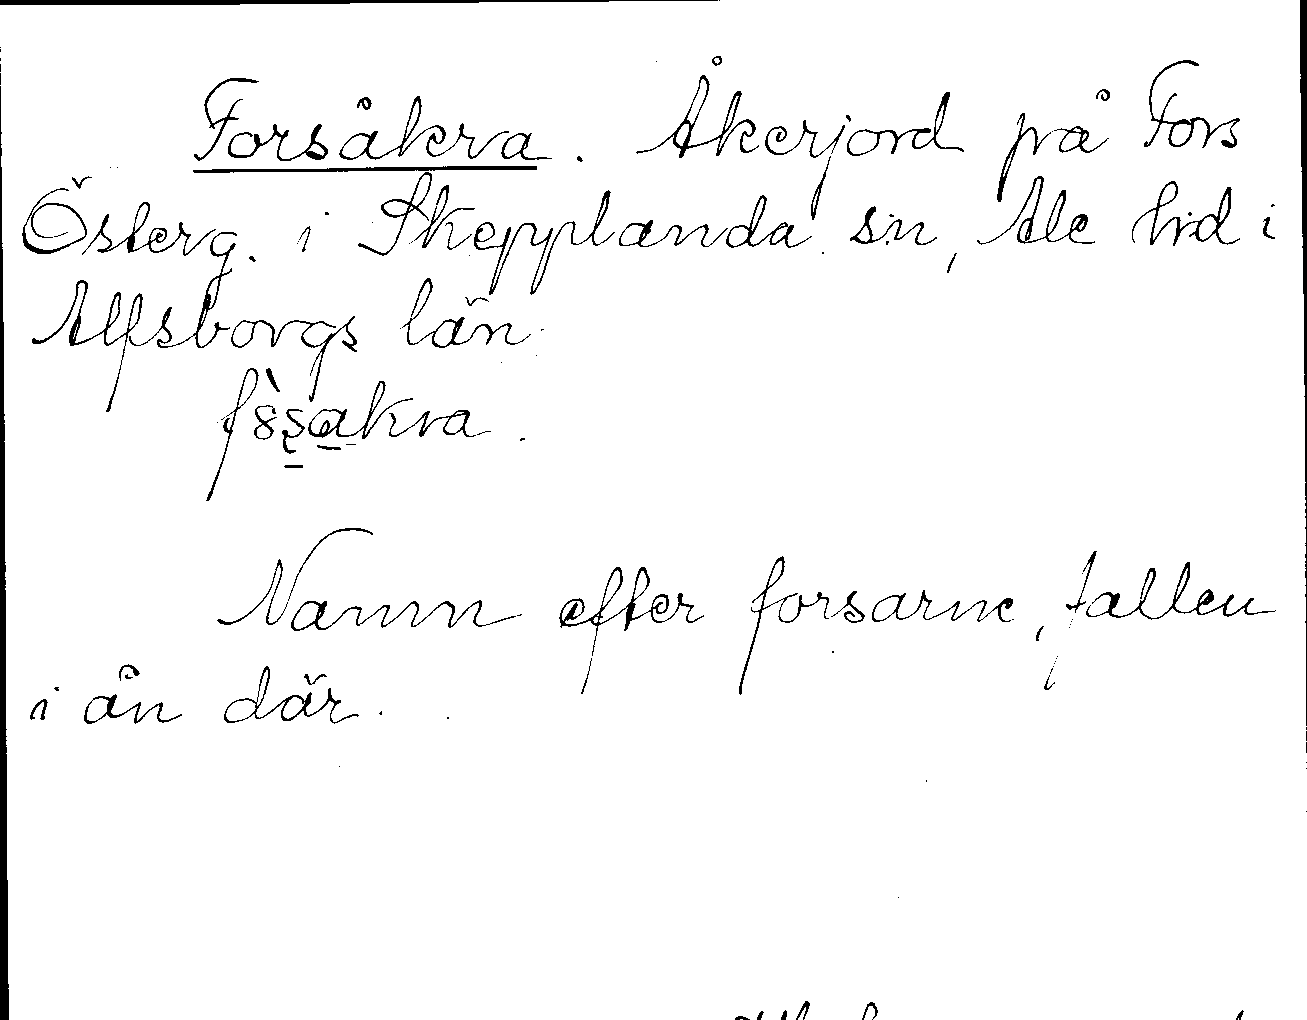 Forsåkra. Åkerjord på Fors
Österg. i Skepplanda sn, Ale hd i
Alfsborgs län.
Namn efter forsarne, fallen
i ån där.